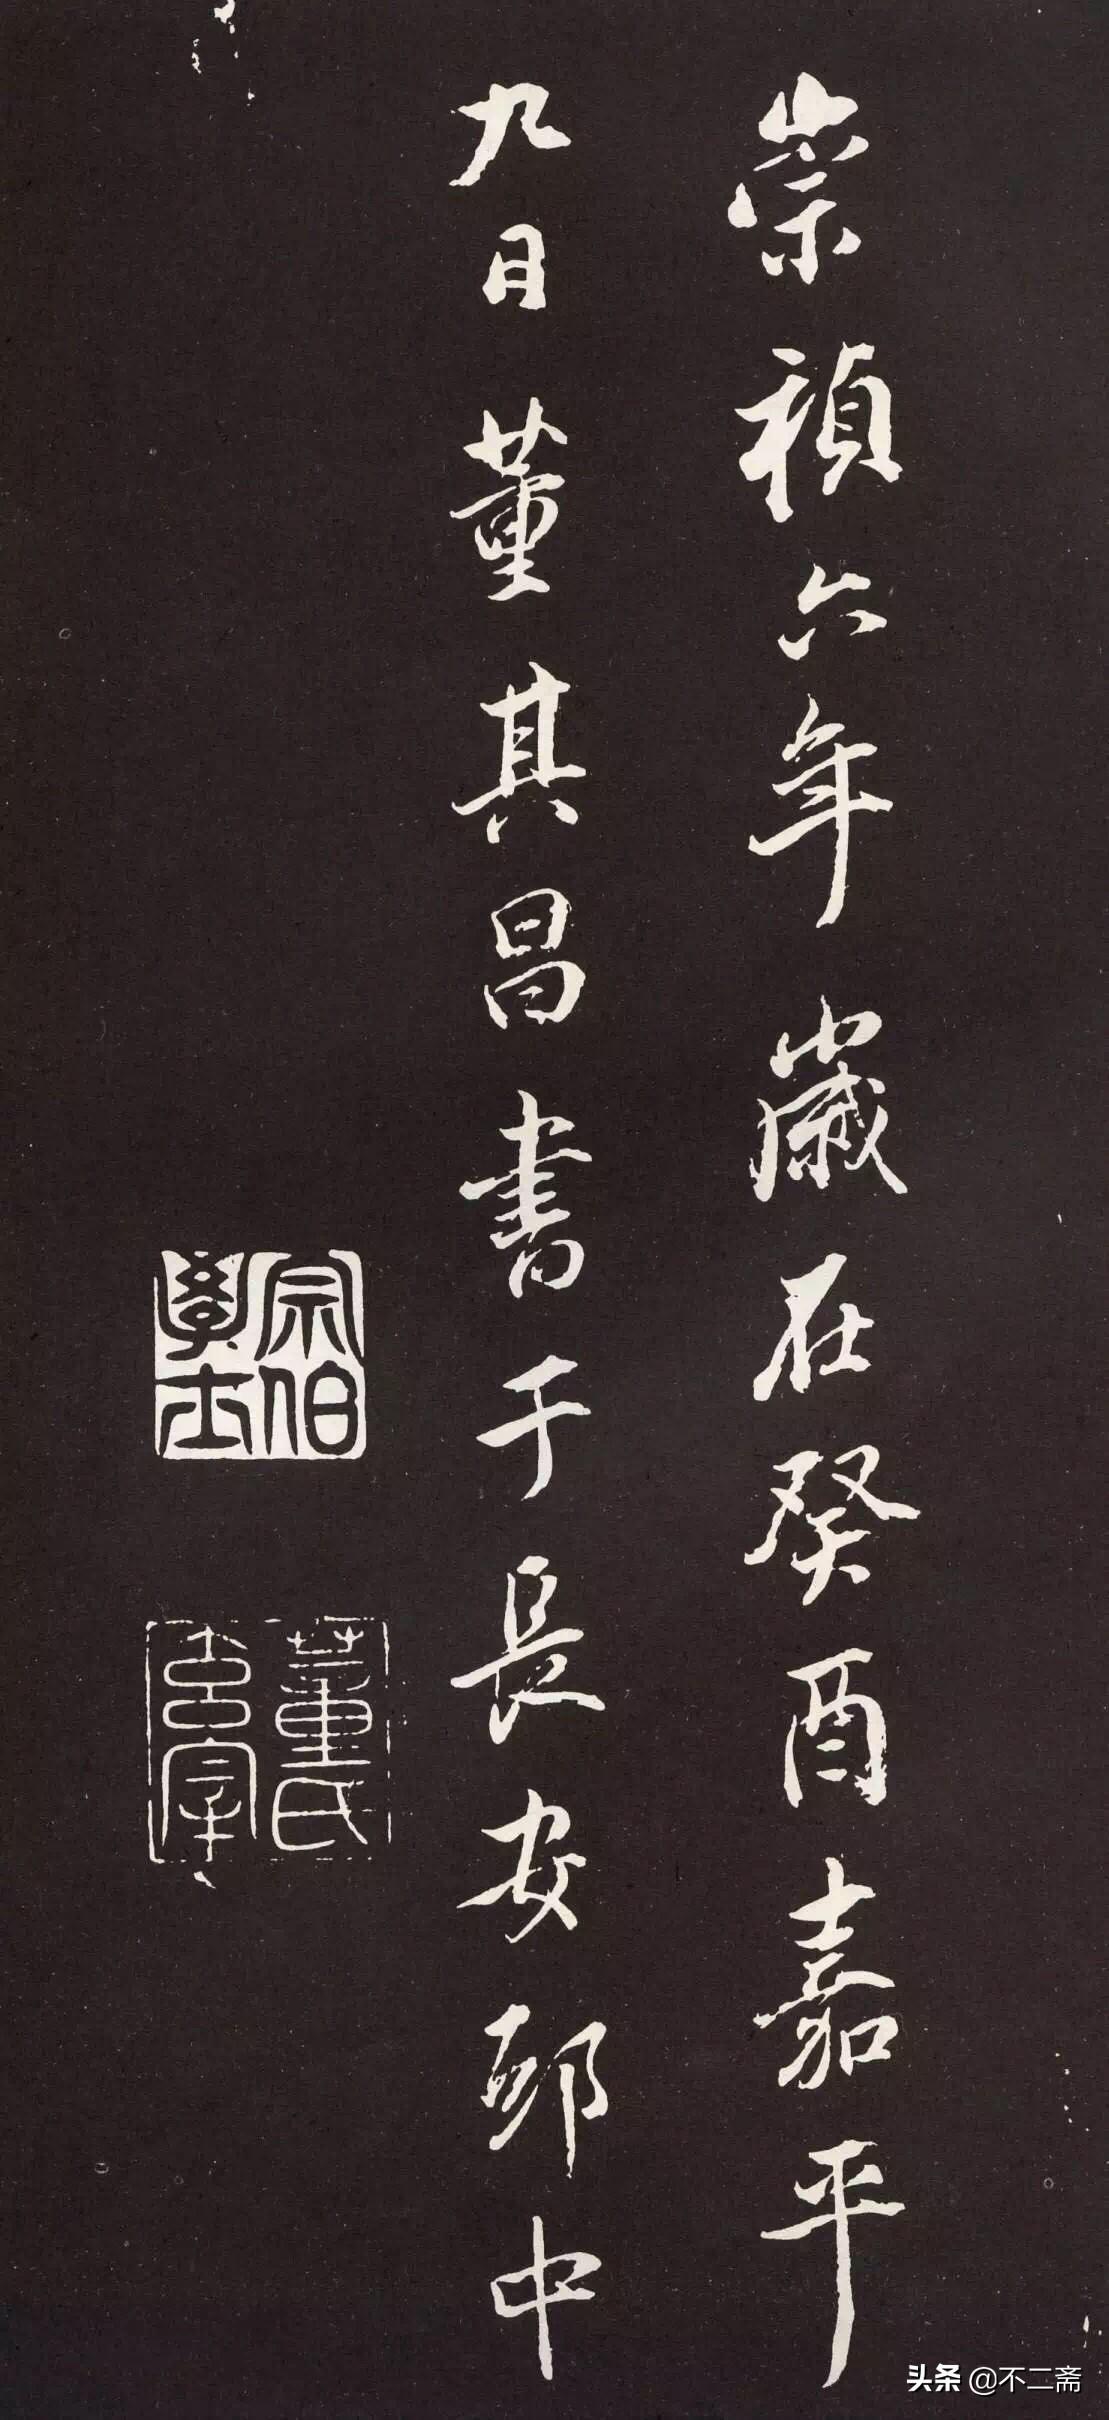 崇禎六年歲在癸酉嘉平
九日董其昌書于長安邸中
宗伯學士
董氏玄宰
头条 @不二斋